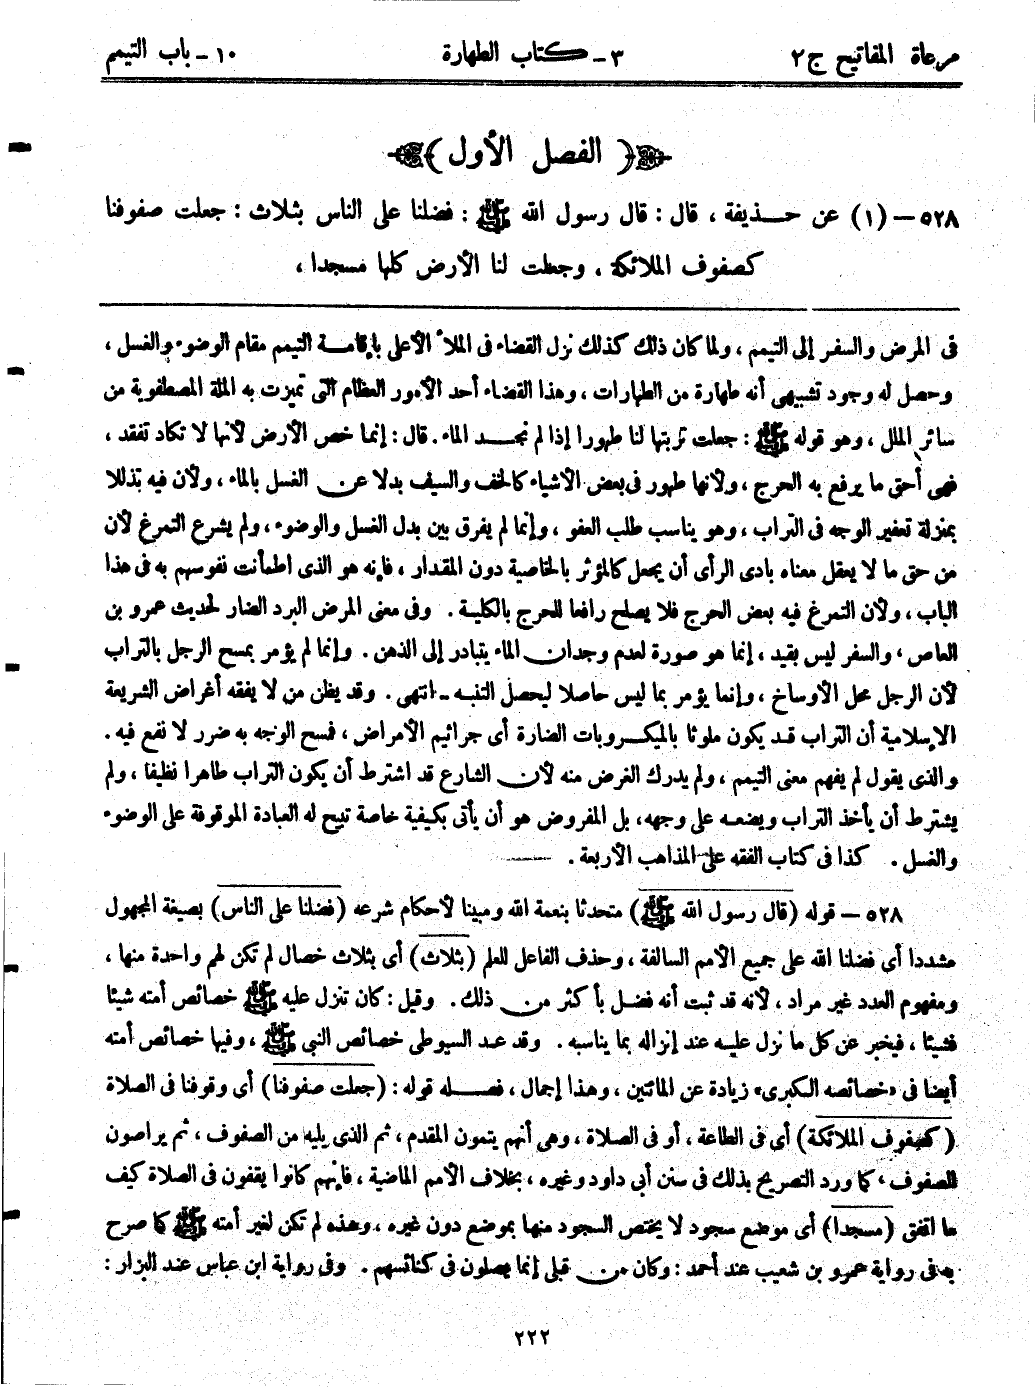 مرعاة المفاتيح ج ٢
٣ ـ كتاب الطهارة
١٠ ـ باب التيمم
﴿ الفصل الأول ﴾
٥٢٨ – (١) عن حذيفة ، قال : قال رسول الله ﷺ : فضلنا على الناس بثلاث : جعلت صفوفنا
كصفوف الملائكة ، وجعلت لنا الأرض كلها مسجدا ،
فى المرض والسفر إلى التيمم ، ولما كان ذلك كذلك نزل القضاء فى الملأ الأعلى بإقامة التيمم مقام الوضوء والغسل ،
وحصل له وجود تشبيهى أنه طهارة من الطهارات ، وهذا القضاء أحد الأمور العظام التى تميزت به الملة المصطفوية من
سائر الملل ، وهو قوله ﷺ : جعلت تربتها لنا طهورا إذا لم نجد الماء . قال : إنما خص الأرض لأنها لا تكاد تفقد ،
فهى أحق ما يرفع به الحرج ، ولأنها طهور فى بعض الأشياء كالخف والسيف بدلا عن الغسل بالماء ، ولأن فيه تذللا
بمنزلة تعفير الوجه فى التراب ، وهو يناسب طلب العفو ، وإنما لم يفرق بين بدل الغسل والوضوء ، ولم يشرع التمرغ لأن
من حق ما لا يعقل معناه بادى الرأى أن يجعل كالمؤثر بالخاصية دون المقدار ، فإنه هو الذى اطمأنت نفوسهم به فى هذا
الباب ، ولأن التمرغ فيه بعض الحرج فلا يصلح رافعا للحرج بالكلية . وفى معنى المرض البرد الضار لحديث عمرو بن
العاص ، والسفر ليس بقيد ، إنما هو صورة لعدم وجدان الماء يتبادر إلى الذهن . وإنما لم يؤمر بمسح الرجل بالتراب
لأن الرجل محل الأوساخ ، وإنما يؤمر بما ليس حاصلا ليحصل التنبه ـ انتهى . وقد يظن من لا يفقه أغراض الشريعة
الإسلامية أن التراب قد يكون ملوثا بالميكروبات الضارة أى جراثيم الأمراض ، فمسح الوجه به ضرر لا نفع فيه .
والذى يقول لم يفهم معنى التيمم ، ولم يدرك الغرض منه لأن الشارع قد اشترط أن يكون التراب طاهرا نظيفا ، ولم
يشترط أن يأخذ التراب ويضعه على وجهه ، بل المفروض هو أن يأتى بكيفية خاصة تبيح له العبادة الموقوفة على الوضوء
والغسل . كذا فى كتاب الفقه على المذاهب الأربعة .
٥٢٨ – قوله (قال رسول الله ﷺ) متحدثا بنعمة الله ومبينا لأحكام شرعه (فضلنا على الناس) بصيغة المجهول
مشددا أى فضلنا الله على جميع الأمم السالفة ، وحذف الفاعل للعلم (بثلاث) أى بثلاث خصال لم تكن لهم واحدة منها ،
ومفهوم العدد غير مراد ، لأنه قد ثبت أنه فضل بأكثر من ذلك . وقيل : كان تنزل عليه ﷺ خصائص أمته شيئا
فشيئا ، فيخبر عن كل ما نزل عليه عند إنزاله بما يناسبه . وقد عد السيوطى خصائص النبى ﷺ ، وفيها خصائص أمته
أيضا فى «خصائصه الكبرى» زيادة عن المائتين ، وهذا إجمال ، فصله قوله : (جعلت صفوفنا) أى وقوفنا فى الصلاة
(كصفوف الملائكة) أى فى الطاعة ، أو فى الصلاة ، وهى أنهم يتمون المقدم ، ثم الذى يليه من الصفوف ، ثم يراصون
الصفوف ، كما ورد التصريح بذلك فى سنن أبى داود وغيره ، بخلاف الأمم الماضية ، فإنهم كانوا يقفون فى الصلاة كيف
ما اتفق (مسجدا) أى موضع سجود لا يختص السجود منها بموضع دون غيره ، وهذه لم تكن لغير أمته ﷺ كما صرح
به فى رواية عمرو بن شعيب عند أحمد : وكان من قبلى إنما يصلون فى كنائسهم . وفى رواية ابن عباس عند البزار :
٢٢٢